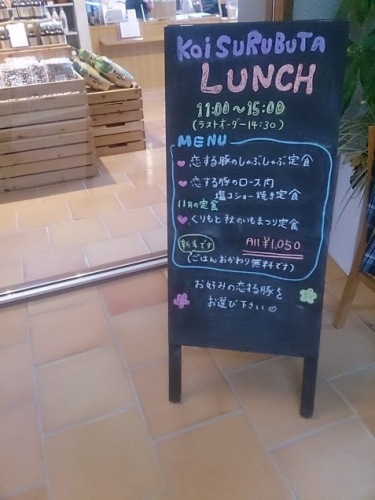 KOiSURUBUTA
LUNCH
11:00〜15:00
(ラストオーダー14:30)
MENU
恋する豚のしゃぶしゃぶ定食
恋する豚のロース肉
塩コショー焼き定食
11月の定食
くりもと 秋のいもまつり定食
新米です All ¥1,050
(ごはんおかわり無料です)
お好みの恋する豚を
お選び下さい